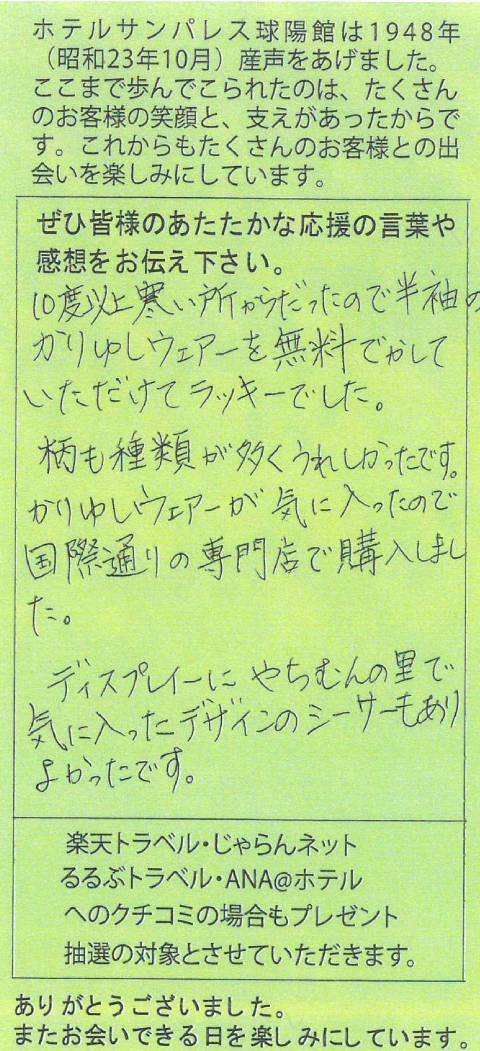 ホテルサンパレス球陽館は1948年
（昭和23年10月）産声をあげました。
ここまで歩んでこられたのは、たくさん
のお客様の笑顔と、支えがあったからで
す。これからもたくさんのお客様との出
会いを楽しみにしています。
ぜひ皆様のあたたかな応援の言葉や
感想をお伝え下さい。
10度以上寒い所からだったので半袖の
かりゆしウェアーを無料でかして
いただけてラッキーでした。
柄も種類が多くうれしかったです。
かりゆしウェアーが気に入ったので
国際通りの専門店で購入しまし
た。
ディスプレイーにやちむんの里で
気に入ったデザインのシーサーもあり
よかったです。
楽天トラベル・じゃらんネット
るるぶトラベル・ANA@ホテル
へのクチコミの場合もプレゼント
抽選の対象とさせていただきます。
ありがとうございました。
またお会いできる日を楽しみにしています。